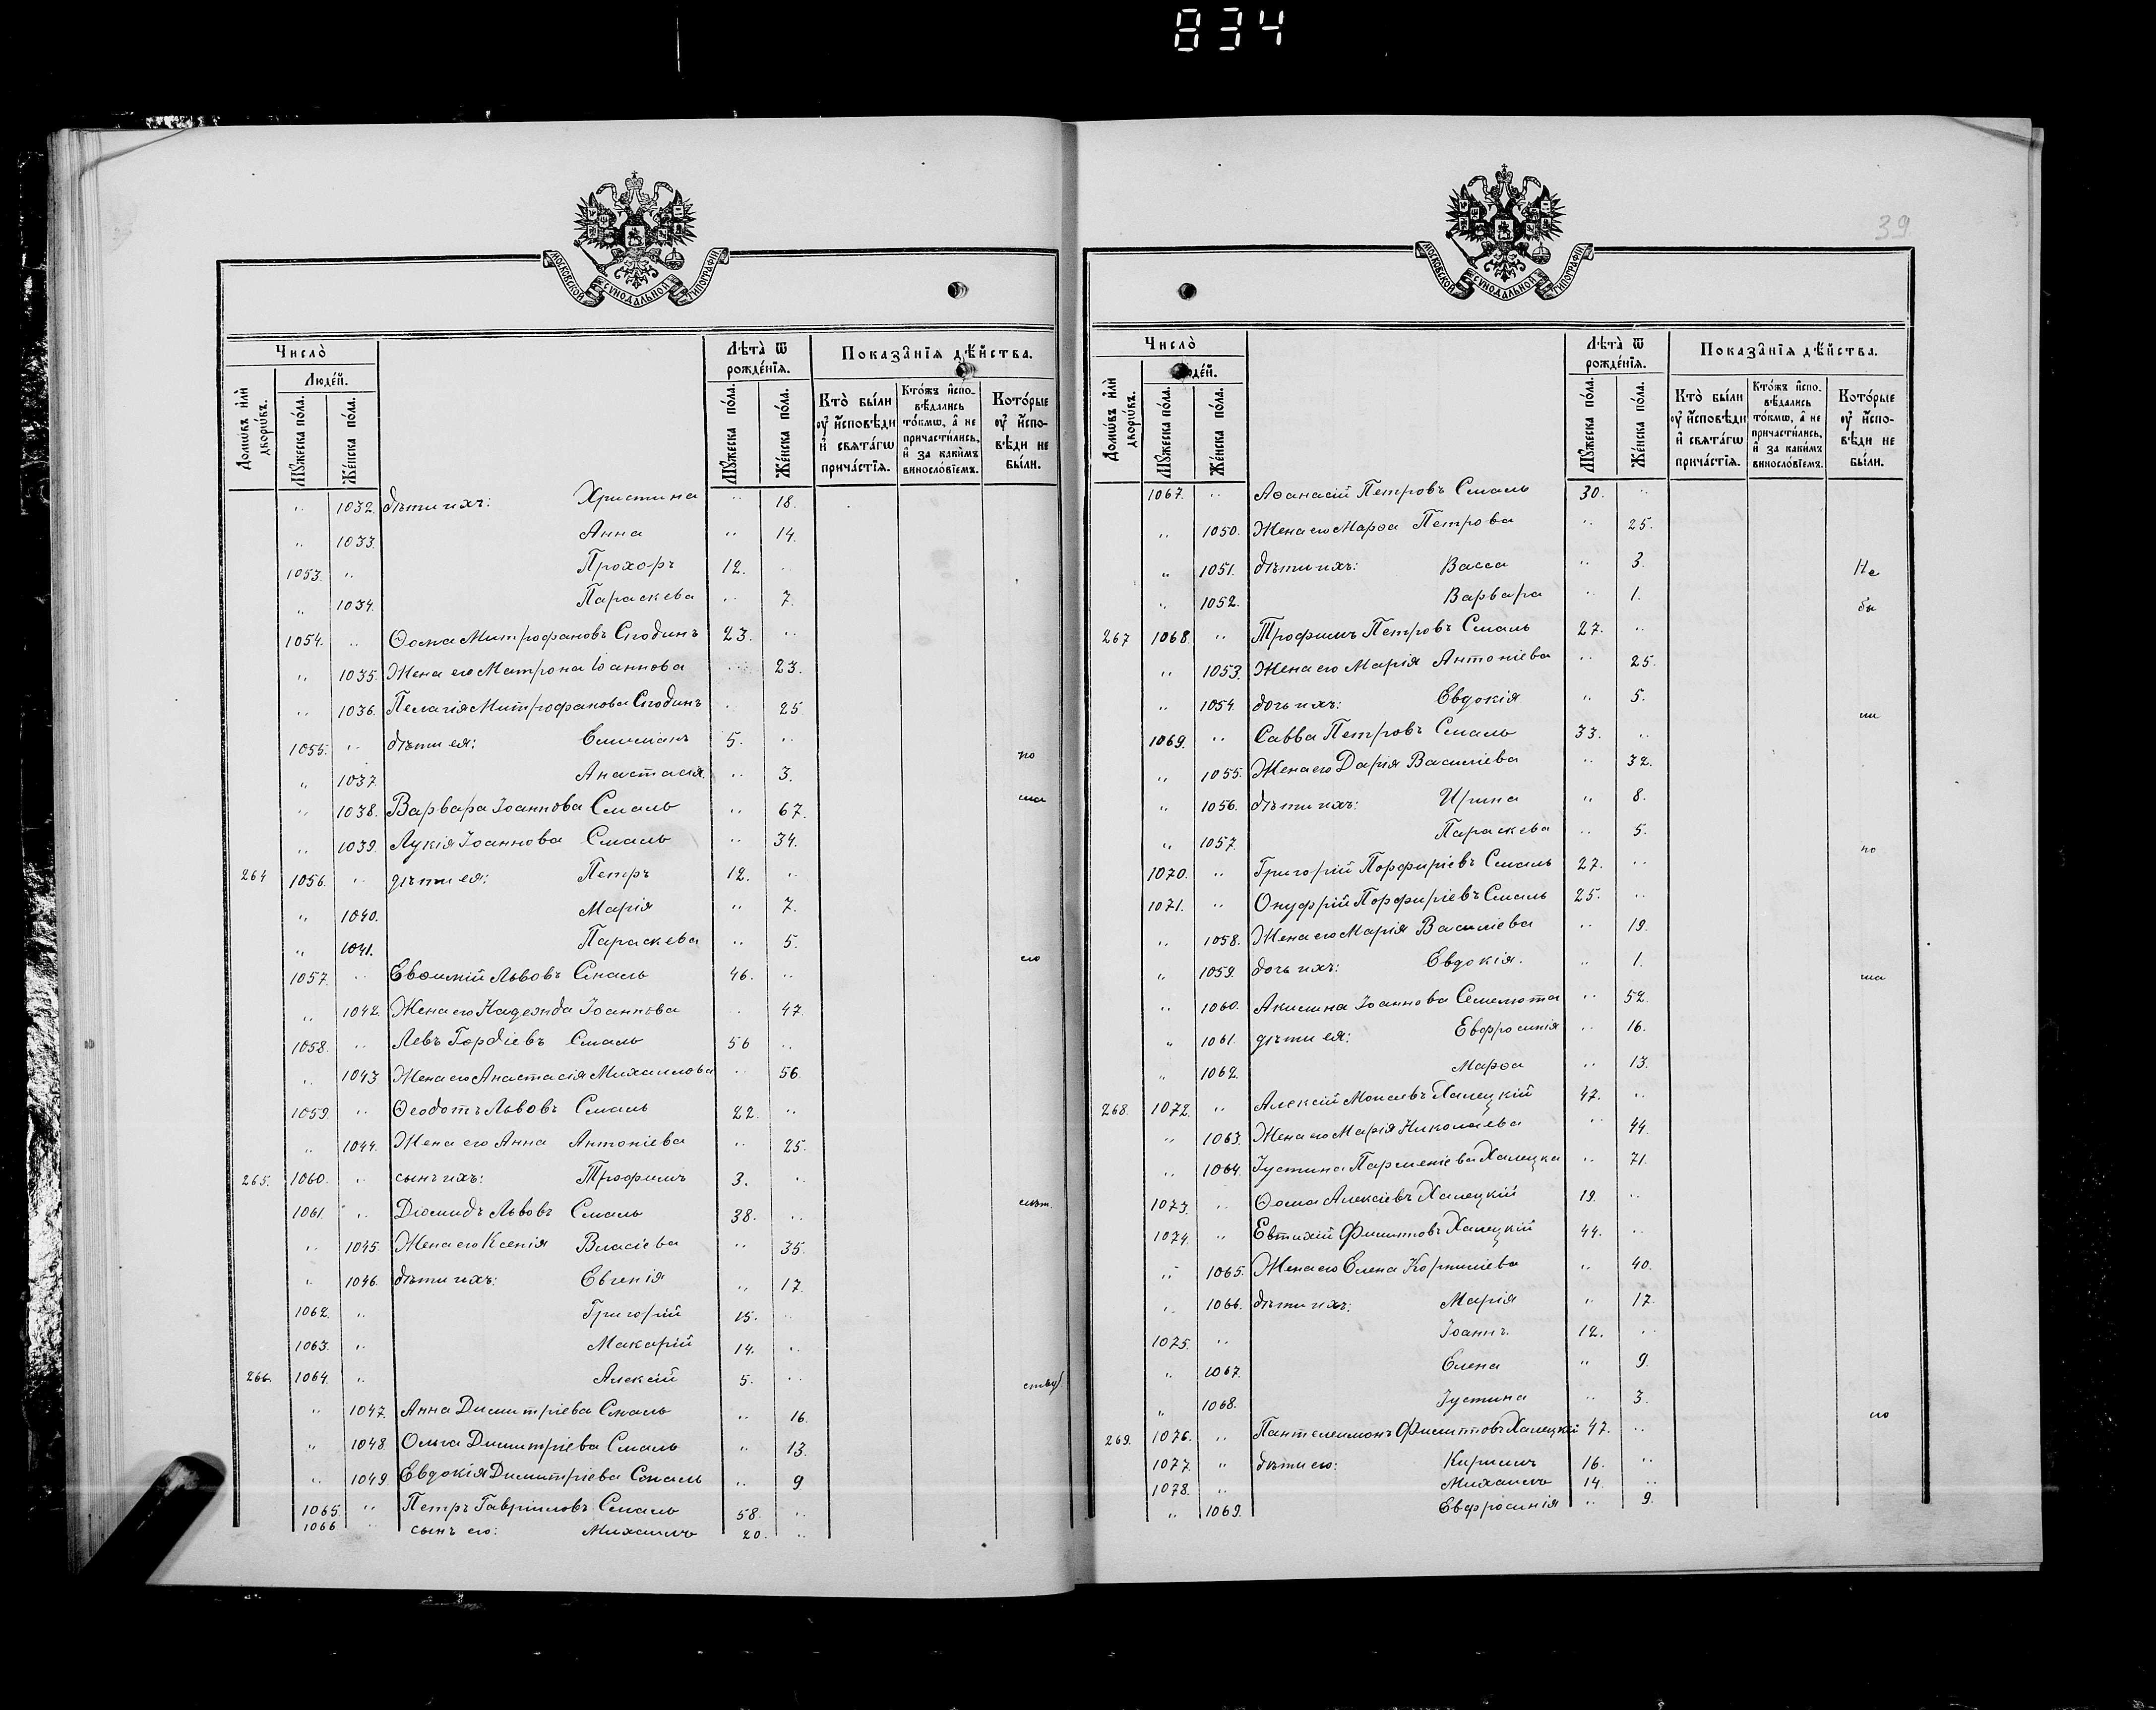 834
МОСКОВСКОЙ СУНОДАЛЬНОЙ ТИПОГРАФІИ
Число̀
Людéй.
Домѡ́въ и҆лѝ дворѡ́въ.
Мꙋ́жеска по́ла.
Же́нска по́ла.
Лѣ́та ѿ рожде́нїѧ.
Мꙋ́жеска по́ла.
Же́нска по́ла.
Показа̑нїѧ дѣ́йства.
Кто̀ бы́ли оу҆ и҆́сповѣди и҆ свѧта́гѡ прича́стїѧ.
Кто́жъ и҆спо­вѣ́дались то́кмѡ, а҆ не причасти́лись, и҆ за каки́мъ виносло́вїемъ.
Кото́рые оу҆ и҆́спо­вѣди не бы́ли.
" 1032. дѣти ихъ: Христина " 18.
" 1033. Анна " 14.
1053. " Прохоръ 12. "
" 1034. Параскева " 7.
1054. " Ѳома Митрофановъ 23. "
" 1035. Жена его Матрона Іоаннова " 23.
" 1036. Пелагія Митрофанова " 25
1055. " дѣти ея: 5. "
" 1037. Анастасія " 3. по
" 1038. Варвара Іоаннова Смаль " 67.
" 1039. Лукія Іоаннова Смаль " 34.
264 1056. " дѣти ея: Петръ 12. "
" 1040. Марія " 7.
" 1041. Параскева " 5.
1057. " Евѳимій Львовъ Смаль 46. "
" 1042. Жена его Надежда Іоаннова " 47.
1058. " Левъ Гордіевъ Смаль 56 "
" 1043 Жена его Анастасія Михаилова " 56.
1059. " Ѳеодотъ Львовъ Смаль 22. "
" 1044. Жена его Анна Антоніева " 25.
265. 1060. " сынъ ихъ: Трофимъ 3. "
1061. " Діомидъ Львовъ Смаль 38. "
" 1045. Жена его Ксенія Власіева " 35.
" 1046. дѣти ихъ: Евгенія " 17.
1062. " Григорій 15. "
1063. " Макарій 14. "
266. 1064. " Алексій 5. "
" 1047. Анна Димитріева Смаль " 16.
" 1048. Ольга Димитріева Смаль " 13.
" 1049 Евдокія Димитріева Смаль " 9
1065. " Петръ Гавріиловъ Смаль 58. "
1066 " сынъ его: Михаилъ 20. "
39
МОСКОВСКОЙ СУНОДАЛЬНОЙ ТИПОГРАФІИ
Число̀
Людéй.
Домѡ́въ и҆лѝ дворѡ́въ.
Мꙋ́жеска по́ла.
Же́нска по́ла.
Лѣ́та ѿ рожде́нїѧ.
Мꙋ́жеска по́ла.
Же́нска по́ла.
Показа̑нїѧ дѣ́йства.
Кто̀ бы́ли оу҆ и҆́сповѣди и҆ свѧта́гѡ прича́стїѧ.
Кто́жъ и҆спо­вѣ́дались то́кмѡ, а҆ не причасти́лись, и҆ за каки́мъ виносло́вїемъ.
Кото́рые оу҆ и҆́спо­вѣди не бы́ли.
1067. " Аѳанасій Петровъ Смаль 30. "
" 1050. Жена его Марѳа Петрова " 25.
" 1051. дѣти ихъ: Васса " 3. Не
" 1052. Варвара " 1. бы
267 1068. " Трофимъ Петровъ Смаль 27. "
" 1053. Жена его Марія Антоніева " 25.
" 1054. дочь ихъ: Евдокія " 5. ли
1069. " Савва Петровъ Смаль 33. "
" 1055. Жена его Дарія Василіева " 32.
" 1056. дѣти ихъ: Ирина " 8.
" 1057. Параскева " 5. по
1070. " Григорій Порфиріевъ Смаль 27. "
1071. " Онуфрій Порфиріевъ Смаль 25. "
" 1058. Жена его Марія Василіева " 19.
" 1059. дочь ихъ: Евдокія. " 1.
" 1060. Акилина Іоаннова " 52.
" 1061. дѣти ея: Евфросинія " 16.
" 1062. Марѳа " 13.
268. 1072. " Алексій Моисеевъ Халецкій 47. "
" 1063. Жена его Марія Николаева " 44.
" 1064. Іустина Парменіева Халецка " 71.
1073. " Ѳома Алексіевъ Халецкій 19. "
1074. " Евтихій Филипповъ Халецкій 44. "
" 1065. Жена его Елена Корниліева " 40.
" 1066. дѣти ихъ: Марія " 17.
1075. " Іоаннъ. 12. "
" 1067. Елена " 9.
" 1068. Іустина " 3.
269. 1076. " Пантелеимонъ Филипповъ Халецкій 47. "
1077. " дѣти его: Кириллъ 16. "
1078. " Михаилъ 14. "
" 1069. Евфросинія " 9.